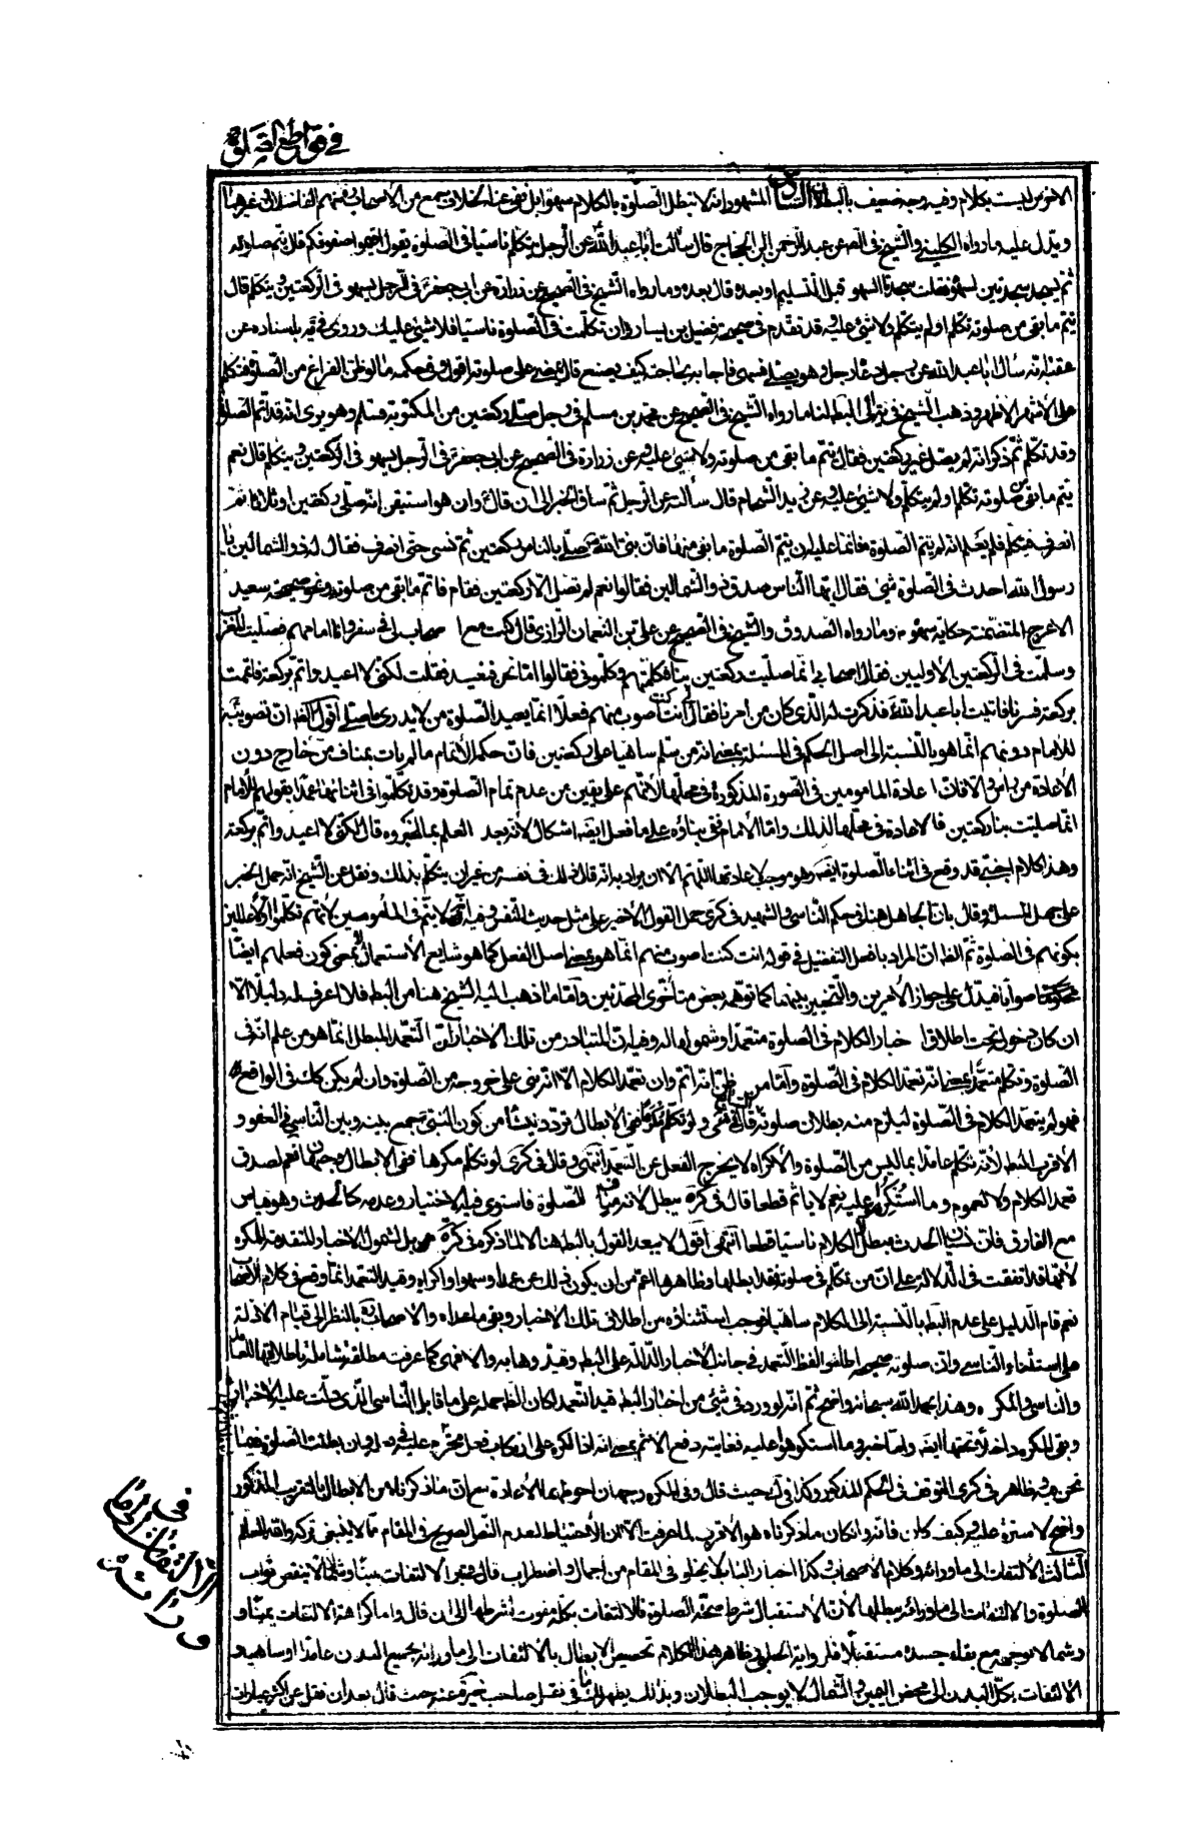 في قواطع الصلوة
الاخرس ليست بكلام وفيه وجه ضعيف بالبطلان السادس المشهور انه لا تبطل الصلوة بالكلام سهوا بل نفى عنه الخلاف جمع من الاصحاب منهم الفاضلان وغيرهما
ويدل عليه ما رواه الكليني والشيخ في الصحيح عن عبد الرحمن بن الحجاج قال سألت أبا عبد الله عن الرجل يتكلم ناسيا في الصلوة يقول اقيموا صفوفكم قال يتم صلوته
ثم يسجد سجدتين لسهوه فقلت سجدتا السهو قبل التسليم او بعده قال بعده وما رواه الشيخ في الصحيح عن زرارة عن ابي جعفر في الرجل يسهو في الركعتين ويتكلم قال
يتم ما بقي من صلوته تكلم او لم يتكلم ولا شيء عليه وقد تقدم في صحيحة فضيل بن يسار وان تكلمت في الصلوة ناسيا فلا شيء عليك وروى في يه باسناده عن
عقبة انه سأل ابا عبد الله عن رجل دعاه رجل وهو يصلي فسهى فاجابه بحاجته كيف يصنع قال يمضي على صلوته اقول وفي حكمه ما لو ظن الفراغ من الصلوة فتكلم
على الاشهر الاظهر وذهب الشيخ في يه الى البطلان لنا ما رواه الشيخ في الصحيح عن محمد بن مسلم في رجل صلى ركعتين من المكتوبة فسلم وهو يرى انه قد اتم الصلوة
وقد تكلم ثم ذكر انه لم يصل غير ركعتين فقال يتم ما بقي من صلوته ولا شيء عليه وعن زرارة في الصحيح عن ابي جعفر في الرجل يسهو في الركعتين ويتكلم قال نعم
يتم ما بقي من صلوته تكلم او لم يتكلم ولا شيء عليه وعن زيد الشحام قال سألته عن الرجل ثم ساق الخبر الى ان قال وان هو استيقن انه صلى ركعتين او ثلاثا ثم
انصرف فتكلم فلم يعلم انه لم يتم الصلوة فانما عليه ان يتم الصلوة ما بقي منها فان نبي الله صلى بالناس ركعتين ثم نسى حتى انصرف فقال له ذو الشمالين يا
رسول الله احدث في الصلوة شيء فقال ايها الناس صدق ذو الشمالين فقالوا نعم لم تصل الا ركعتين فقام فاتم ما بقي من صلوته ونحو صحيحة سعيد
الاعرج المتضمنة حكاية سهوه وما رواه الصدوق والشيخ في الصحيح عن علي بن النعمان الرازي قال كنت مع اصحاب لي في سفر وانا امامهم فصليت المغرب
وسلمت في الركعتين الاوليين فقال اصحابي انما صليت ركعتين بنا فكلمتهم وكلموني فقالوا اما نحن فنعيد فقلت لكني لا اعيد واتم بركعة فاتممت
بركعة فسرنا فاتيت ابا عبد الله فذكرت له الذي كان من امرنا فقال لي انت كنت اصوب منهم فعلا انما يعيد الصلوة من لا يدري ما صلى اقول الظ ان تصويبه
للامام دونهم انما هو بالنسبة الى اصل الحكم في المسئلة بمعنى انه من سلم ساهيا على ركعتين فان حكمه الاتمام ما لم يات بمناف من خارج دون
الاعادة من راس والا فان اعادة المامومين في الصورة المذكورة في محلها لانهم على يقين من عدم تمام الصلوة وقد تكلموا في اثنائها عمدا بقولهم للامام
انما صليت بنا ركعتين فالاعادة في محلها لذلك واما الامام ففي بناؤه على ما فعل ايضا اشكال لانه بعد العلم بما اخبروه قال لكني لا اعيد واتم بركعة
وهذا كلام اجنبي قد وقع في اثناء الصلوة ايضا وهو موجب لاعادتها اللهم الا ان يراد به انه قال ذلك في نفسه من غير ان يتكلم بذلك ونقل عن الشيخ انه حمل الخبر
على جهل المسئلة وقال بان الجاهل هنا في حكم الناسي والشهيد في كرى حمل القول الاخير على مثل حديث النفس وفيه انه لا يتم في المأمومين لانهم تكلموا عالمين
بكونهم في الصلوة ثم الظ ان المراد بافعل التفضيل في قوله انت كنت اصوب منهم انما هو بمعنى اصل الفعل كما هو شايع الاستعمال لا بمعنى كون فعلهم ايضا
صوابا فيدل على جواز الامرين والتخيير بينهما كما توهمه بعض متأخري المحدثين واما ما ذهب اليه الشيخ هنا من البطلان فلا اعرف له دليلا الا
ان كان دخوله تحت اطلاق اخبار الكلام في الصلوة متعمدا وشمولها له وفيه ان المتبادر من تلك الاخبار ان التعمد المبطل انما هو من علم انه في
الصلوة وتكلم متعمدا بمعنى انه تعمد الكلام في الصلوة واما من ظن انه اتم وان تعمد الكلام الا انه بنى على خروجه من الصلوة وان لم يكن كك في الواقع
فهو لم يتعمد الكلام في الصلوة ليلزم منه بطلان صلوته قال في هى ولو تكلم مكرها ففي الابطال تردد ينشأ من كون النبي جمع بينه وبين الناسي في العفو و
الاقرب البطلان لانه تكلم عامدا بما ليس من الصلوة والاكراه لا يخرج الفعل عن التعمد انتهى وقال في كرى لو تكلم مكرها ففي الابطال وجهان نعم لصدق
تعمد الكلام ولا لعموم وما استكرهوا عليه نعم لا ياثم قطعا قال في كره يبطل لانه مناف للصلوة فاستوى فيه الاختيار وعدمه كالحدث وهو قياس
مع الفارق فان نسيان الحدث مبطل لا الكلام ناسيا قطعا انتهى اقول لا يبعد القول بالبطلان هنا لا لما ذكره في كره بل لشمول الاخبار المتقدمة للمكره
لانها قد اتفقت في الدلالة على ان من تكلم في صلوته فقد ابطلها وظاهرها اعم من ان يكون ذلك عن عمد او سهو او اكراه وقيد التعمد انما وقع في كلام الاصحاب
نعم قام الدليل على عدم البطلان بالنسبة الى الكلام ساهيا فوجب استثناؤه من اطلاق تلك الاخبار وبقي ما عداه والاصحاب بالنظر الى قيام الادلة
على استثناء الناسي وان صلوته صحيحة اطلقوا لفظ التعمد في جانب الاخبار الدالة على البطلان وقيدوها به والا فهي كما عرفت مطلقة شاملة باطلاقها للعامد
والناسي والمكره وهذا بحمد الله سبحانه واضح ثم انه لو ورد في شيء من اخبار البطلان قيد التعمد لكان الظ حمله على ما قابل الناسي الذي دلت عليه الاخبار
وبقي المكره داخلا تحتها ايضا واما خبر وما استكرهوا عليه فغايته رفع الاثم بمعنى انه اذا اكره على ارتكاب فعل محرم عليه فيه وان بطلت الصلوة فيما
نحن فيه وظاهره في كرى التوقف في الحكم المذكور وكذا في حيث قال وفي المكره وجهان احوطهما الاعادة مع ان ما ذكرناه من الابطال بالتقريب المذكور
واضح لا سترة عليه وكيف كان فانه وان كان ما ذكرناه هو الاقرب لما عرفت الا ان الاحتياط لعدم النص الصريح في المقام مما لا ينبغي تركه والله العالم
الثالث الالتفات الى ما ورائه وكلام الاصحاب وكذا اخبار الباب لا يخلو في المقام من اجمال واضطراب قال في الالتفات يمينا وشمالا ينقص ثواب
الصلوة والالتفات الى ما ورائه يبطلها لان الاستقبال شرط صحة الصلوة فالالتفات بكله مفوت لشرطها الى ان قال واما كراهة الالتفات يمينا و
وشمالا بوجهه مع بقاء جسده مستقبلا فلرواية الحلبي وظاهر هذا الكلام تخصيص الابطال بالالتفات الى ما ورائه بجميع البدن عامدا او ساهيا و
الالتفات بكل البدن الى محض اليمين والشمال لا يوجب البطلان وبذلك يظهر في نقل صاحب خيرة عنه حيث قال بعد ان نقل عن اكثر عبارات
في
الالتفات الى ما
ورائه